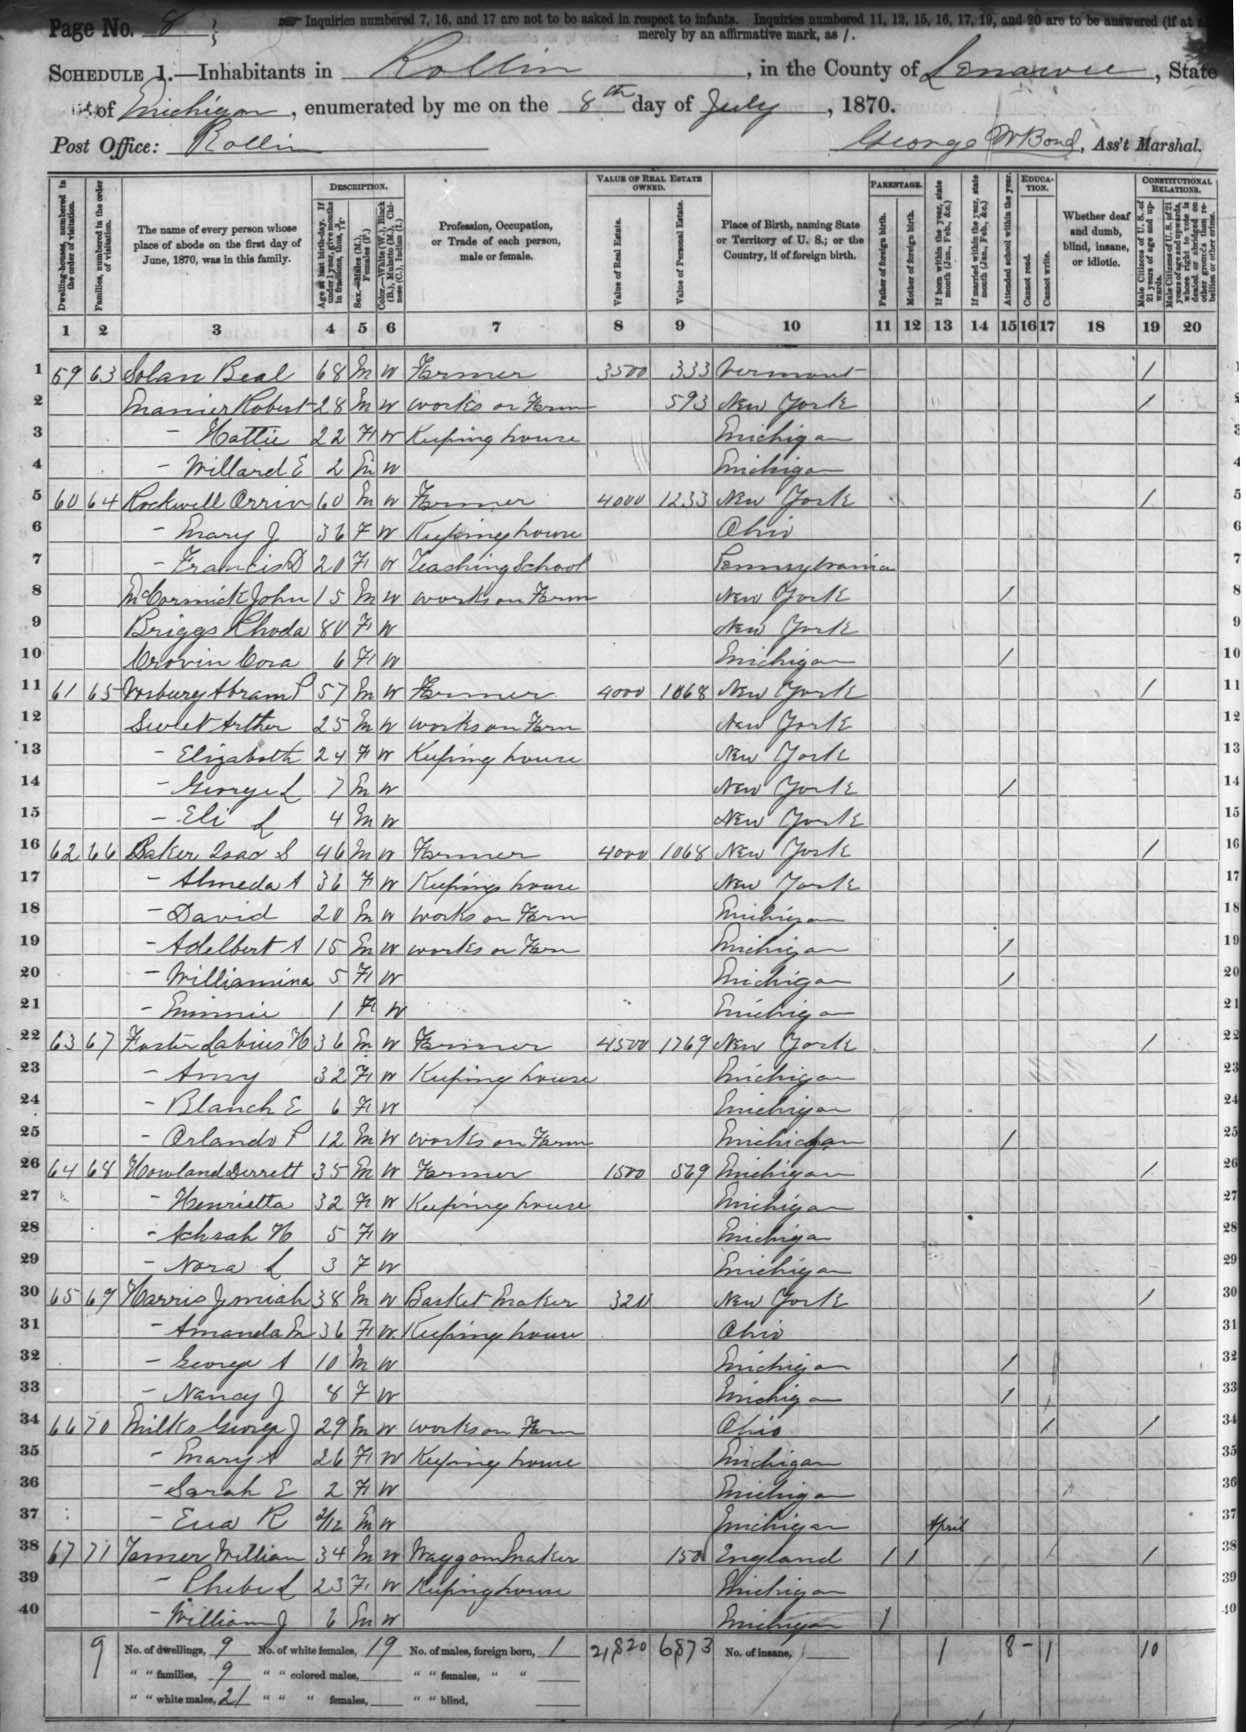 Page No. 8
Inquiries numbered 7, 16, and 17 are not to be asked in respect to infants. Inquiries numbered 11, 12, 15, 16, 17, 19, and 20 are to be answered (if at
merely by an affirmative mark, as /.
SCHEDULE 1.—Inhabitants in Rollin, in the County of Lenawee, State
of Michigan, enumerated by me on the 8th day of July, 1870.
Post Office: Rollin George W Bond, Ass't Marshal.
Dwelling-houses, numbered in the order of visitation.
Families, numbered in the order of visitation.
The name of every person whose place of abode on the first day of June, 1870, was in this family.
DESCRIPTION.
Age at last birth-day. If under 1 year, give months in fractions, thus, 3/12
Sex.—Males (M.), Females (F.)
Color.—White (W.), Black (B.), Mulatto (M.), Chinese (C.), Indian (I.)
Profession, Occupation, or Trade of each person, male or female.
VALUE OF REAL ESTATE OWNED.
Value of Real Estate.
Value of Personal Estate.
Place of Birth, naming State or Territory of U. S.; or the Country, if of foreign birth.
PARENTAGE.
Father of foreign birth.
Mother of foreign birth.
If born within the year, state month (Jan., Feb., &c.)
If married within the year, state month (Jan., Feb., &c.)
Attended school within the year.
EDUCATION.
Cannot read.
Cannot write.
Whether deaf and dumb, blind, insane, or idiotic.
CONSTITUTIONAL RELATIONS.
Male Citizens of U. S. of 21 years of age and upwards.
Male Citizens of U. S. of 21 years of age and upwards, whose right to vote is denied or abridged on other grounds than rebellion or other crime.
1 2 3 4 5 6 7 8 9 10 11 12 13 14 15 16 17 18 19 20
1 59 63 Solan Beal 68 M W Farmer 3500 333 Vermont / 1
2 Robert 28 M W Works on Farm 593 New York / 2
3 — Hattie 22 F W Keeping house Michigan 3
4 — Willard E 2 M W Michigan 4
5 60 64 Rockwell Orrin 60 M W Farmer 4000 1233 New York / 5
6 — Mary J 36 F W Keeping house Ohio 6
7 — Francis D 20 F W Teaching School Pennsylvania 7
8 McCormick John 15 M W Works on Farm New York / 8
9 Briggs Rhoda 80 F W New York 9
10 Crovin Cora 6 F W Michigan / 10
11 61 65 Vosbury Abram P 57 M W Farmer 4000 1068 New York / 11
12 Sweet Arther 25 M W Works on Farm New York 12
13 — Elizabeth 24 F W Keeping house New York 13
14 — George L 7 M W New York / 14
15 — Eli L 4 M W New York 15
16 62 66 Baker Isac S 46 M W Farmer 4000 1068 New York / 16
17 — Almeda A 36 F W Keeping house New York 17
18 — David 20 M W Works on Farm Michigan 18
19 — Adelbert A 15 M W Works on Farm Michigan / 19
20 — Williamina 5 F W Michigan / 20
21 — Minnie 1 F W Michigan 21
22 63 67 Foster Labius H 36 M W Farmer 4500 1769 New York / 22
23 — Amy 32 F W Keeping house Michigan 23
24 — Blanch E 6 F W Michigan 24
25 — Orlando P 12 M W Works on Farm Michigan / 25
26 64 68 Howland Derrett 35 M W Farmer 1500 569 Michigan / 26
27 — Henrietta 32 F W Keeping house Michigan 27
28 — Achsah H 5 F W Michigan 28
29 — Nora L 3 F W Michigan 29
30 65 69 Harris Jemiah 38 M W Basket Maker 320 New York / 30
31 — Amanda M 36 F W Keeping house Ohio 31
32 — George A 10 M W Michigan / 32
33 — Nancy J 8 F W Michigan / 33
34 66 70 Milks George J 29 M W Works on Farm Ohio / / 34
35 — Mary A 26 F W Keeping house Michigan 35
36 — Sarah E 2 F W Michigan 36
37 — R 2/12 M W Michigan April 37
38 67 71 Turner William 34 M W Waggon Maker 150 England / / / 38
39 — Phebe L 23 F W Keeping house Michigan 39
40 — William J 6 M W Michigan / 40
9 No. of dwellings, 9 No. of white females, 19 No. of males, foreign born, 1 21,820 6,873 No. of insane, 1 8 – 1 10
" " families, 9 " " colored males, " " females, " "
" " white males, 21 " " " females, " " blind,